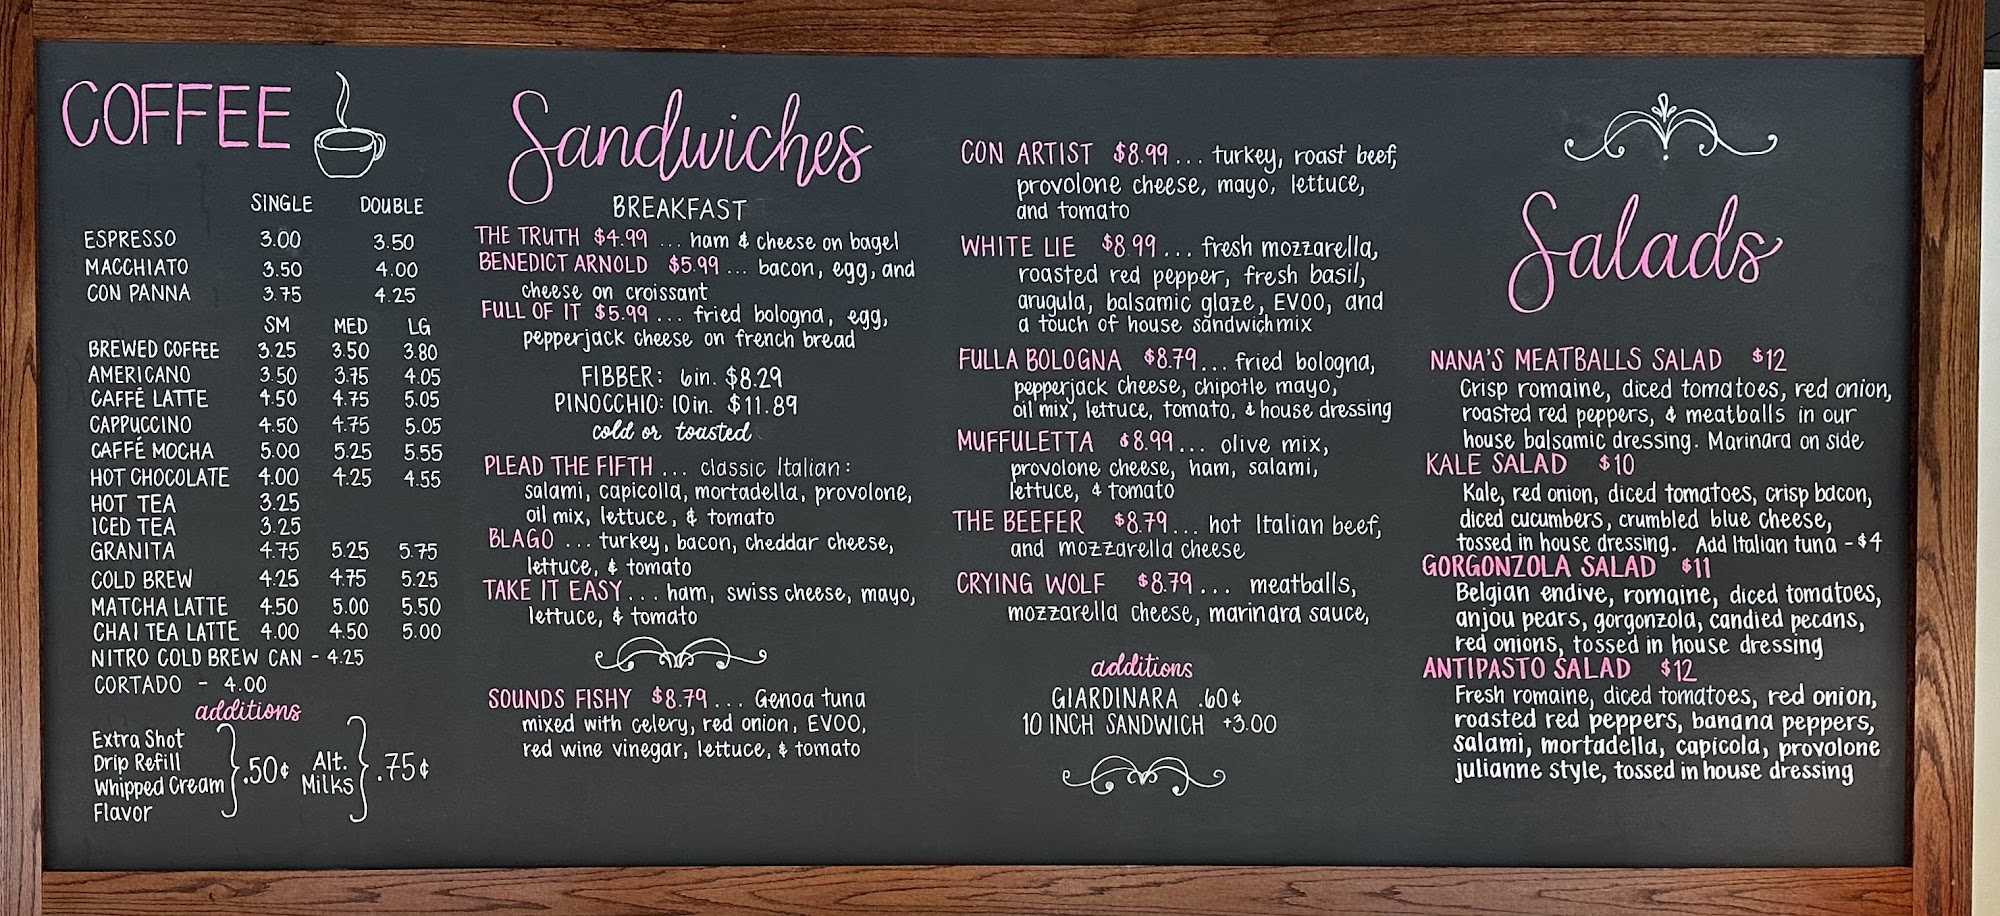 COFFEE
SINGLE DOUBLE
ESPRESSO 3.00 3.50
MACCHIATO 3.50 4.00
CON PANNA 3.75 4.25
SM MED LG
BREWED COFFEE 3.25 3.50 3.80
AMERICANO 3.50 3.75 4.05
CAFFÉ LATTE 4.50 4.75 5.05
CAPPUCCINO 4.50 4.75 5.05
CAFFÉ MOCHA 5.00 5.25 5.55
HOT CHOCOLATE 4.00 4.25 4.55
HOT TEA 3.25
ICED TEA 3.25
GRANITA 4.75 5.25 5.75
COLD BREW 4.25 4.75 5.25
MATCHA LATTE 4.50 5.00 5.50
CHAI TEA LATTE 4.00 4.50 5.00
NITRO COLD BREW CAN - 4.25
CORTADO - 4.00
additions
Extra Shot
Drip Refill
Whipped Cream
Flavor
.50¢
Alt.
Milks
.75¢
Sandwiches
BREAKFAST
THE TRUTH $4.99 ... ham & cheese on bagel
BENEDICT ARNOLD $5.99 ... bacon, egg, and
cheese on croissant
FULL OF IT $5.99 ... fried bologna, egg,
pepperjack cheese on french bread
FIBBER: 6in. $8.29
PINOCCHIO: 10in. $11.89
cold or toasted
PLEAD THE FIFTH ... classic Italian:
salami, capicolla, mortadella, provolone,
oil mix, lettuce, & tomato
BLAGO ... turkey, bacon, cheddar cheese,
lettuce, & tomato
TAKE IT EASY ... ham, swiss cheese, mayo,
lettuce, & tomato
SOUNDS FISHY $8.79 ... Genoa tuna
mixed with celery, red onion, EVOO,
red wine vinegar, lettuce, & tomato
CON ARTIST $8.99 ... turkey, roast beef,
provolone cheese, mayo, lettuce,
and tomato
WHITE LIE $8.99 ... fresh mozzarella,
roasted red pepper, fresh basil,
arugula, balsamic glaze, EVOO, and
a touch of house sandwich mix
FULLA BOLOGNA $8.79 ... fried bologna,
pepperjack cheese, chipotle mayo,
oil mix, lettuce, tomato, & house dressing
MUFFULETTA $8.99 ... olive mix,
provolone cheese, ham, salami,
lettuce, & tomato
THE BEEFER $8.79 ... hot Italian beef,
and mozzarella cheese
CRYING WOLF $8.79 ... meatballs,
mozzarella cheese, marinara sauce,
additions
GIARDINARA .60¢
10 INCH SANDWICH +3.00
Salads
NANA'S MEATBALLS SALAD $12
Crisp romaine, diced tomatoes, red onion,
roasted red peppers, & meatballs in our
house balsamic dressing. Marinara on side
KALE SALAD $10
Kale, red onion, diced tomatoes, crisp bacon,
diced cucumbers, crumbled blue cheese,
tossed in house dressing. Add Italian tuna - $4
GORGONZOLA SALAD $11
Belgian endive, romaine, diced tomatoes,
anjou pears, gorgonzola, candied pecans,
red onions, tossed in house dressing
ANTIPASTO SALAD $12
Fresh romaine, diced tomatoes, red onion,
roasted red peppers, banana peppers,
salami, mortadella, capicola, provolone
julianne style, tossed in house dressing